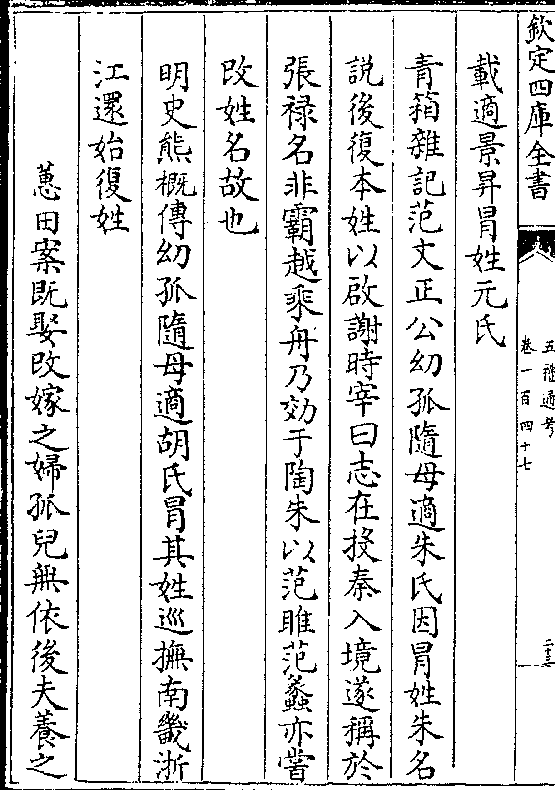 欽定四庫全書
五禮通考
卷一百四十七
二十三
載適景昇冒姓元氏
青箱雜記范文正公幼孤隨母適朱氏因冒姓朱名
説後復本姓以啟謝時宰曰志在投秦入境遂稱於
張禄名非霸越乘舟乃効于陶朱以范雎范蠡亦嘗
改姓名故也
明史熊概傳幼孤隨母適胡氏冒其姓巡撫南畿浙
江還始復姓
蕙田案既娶改嫁之婦孤兒無依後夫養之